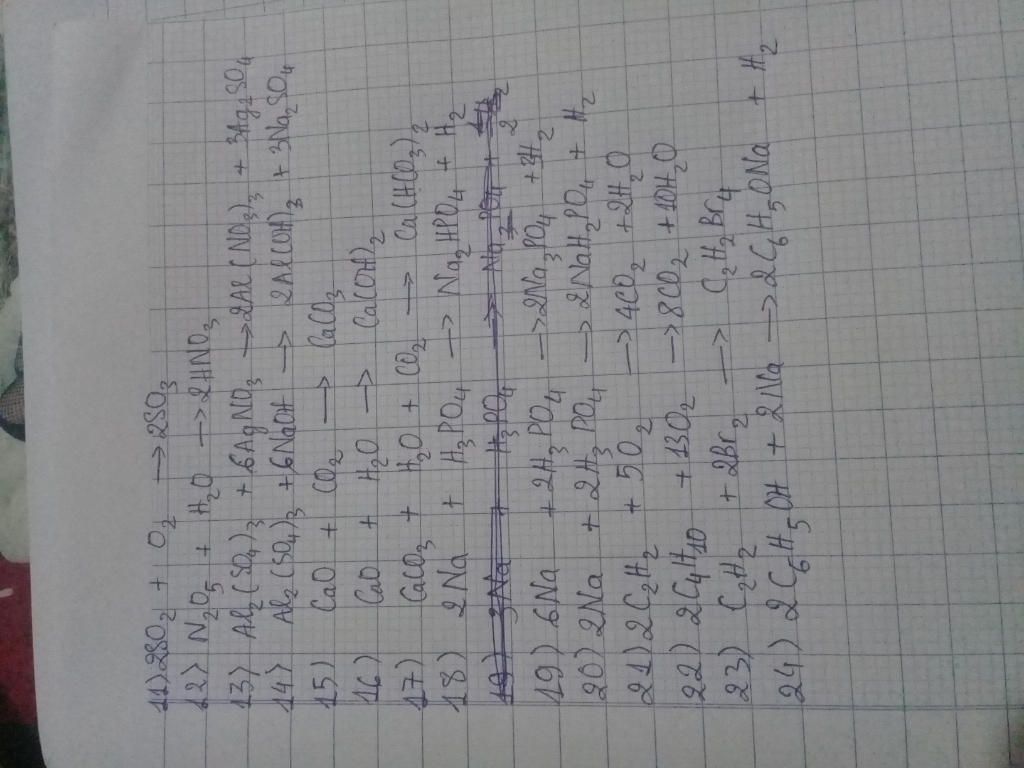 11) 2SO2 + O2 → 2SO3
12) N2O5 + H2O → 2HNO3
13) Al2(SO4)3 + 6AgNO3 → 2Al(NO3)3 + 3Ag2SO4
14) Al2(SO4)3 + 6NaOH → 2Al(OH)3 + 3Na2SO4
15) CaO + CO2 → CaCO3
16) CaO + H2O → Ca(OH)2
17) CaCO3 + H2O + CO2 → Ca(HCO3)2
18) 2Na + H3PO4 → Na2HPO4 + H2
19) 6Na + 2H3PO4 → 2Na3PO4 + 3H2
20) 2Na + 2H3PO4 → 2NaH2PO4 + H2
21) 2C2H2 + 5O2 → 4CO2 + 2H2O
22) 2C4H10 + 13O2 → 8CO2 + 10H2O
23) C2H2 + 2Br2 → C2H2Br4
24) 2C6H5OH + 2Na → 2C6H5ONa + H2